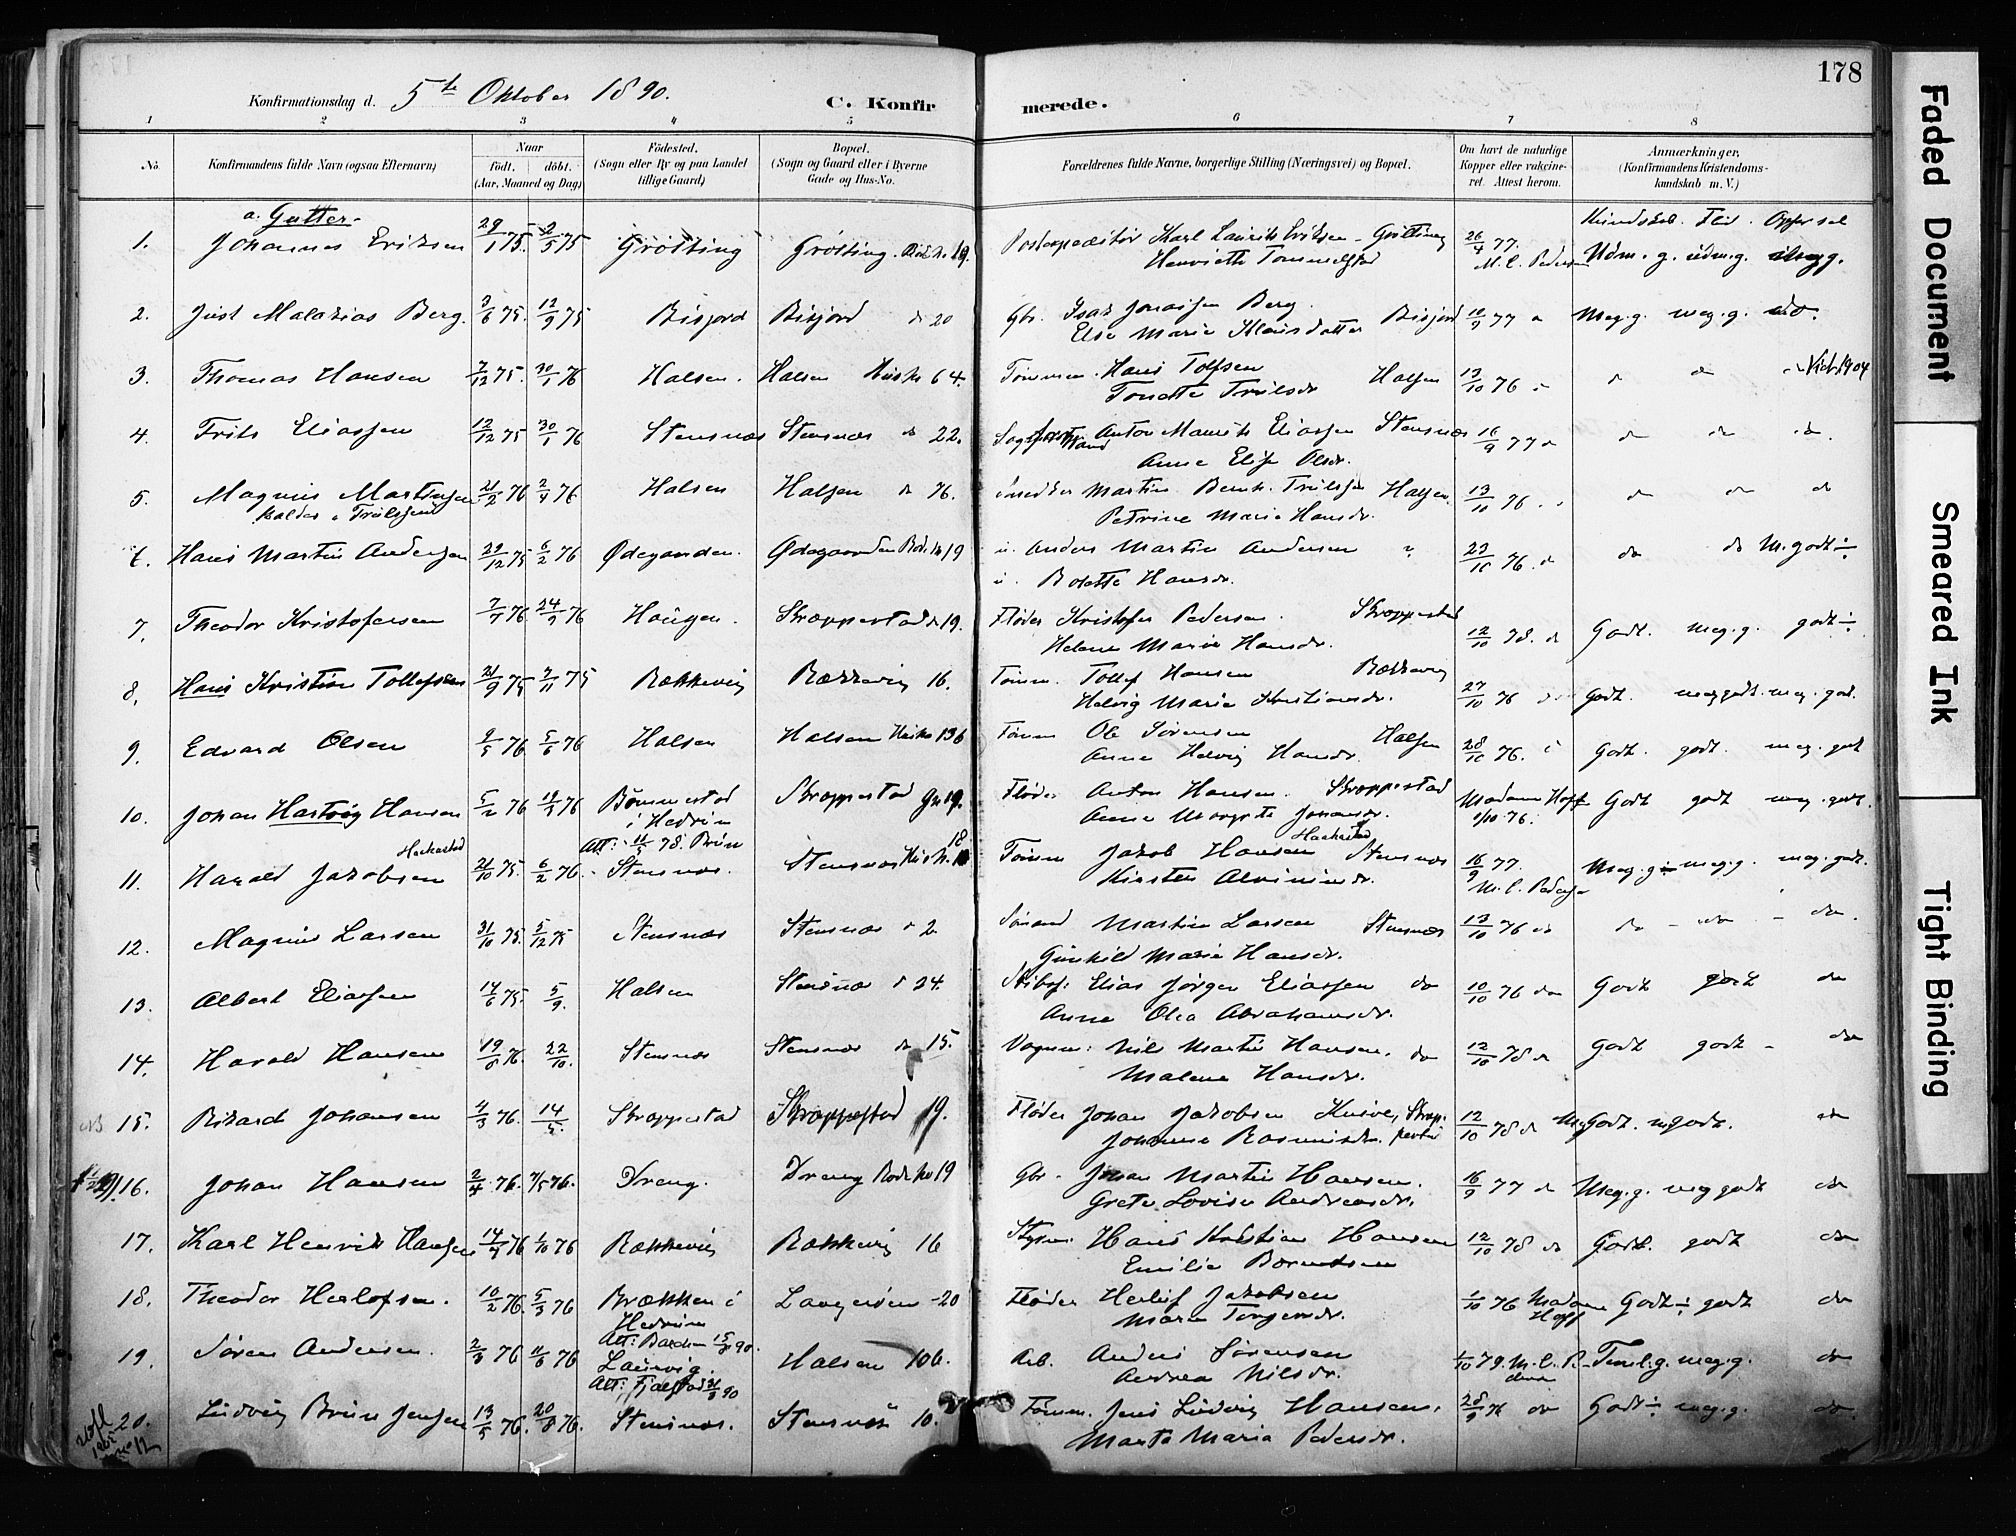 178
Konfirmationsdag d. 5te Oktober 1890.
C. Konfirmerede.
1 2 3 4 5 6 7 8
No. Konfirmandens fulde Navn (ogsaa Efternavn)
Naar født. døbt. (Aar, Maaned og Dag)
Fødested. (Sogn eller By og paa Landet tillige Gaard)
Bopæl. (Sogn og Gaard eller i Byerne Gade og Hus-No.
Forældrenes fulde Navne, borgerlige Stilling (Næringsvei) og Bopæl.
Om havt de naturlige Kopper eller vakcineret. Attest herom.
Anmærkninger. (Konfirmandens Kristendomskundskab m. V.)
a. Gutter. Kundskab. Flid.
1. Johannes Eriksen 29/1 75. 2/5 75 Grøtting Grøtting 19. Karl Laurits Eriksen - Grøtting 26/4 77. Udm. g. udm. g.
Henriette Tommelstad
2. Just Malakias Berg. 3/6 75. 12/9 75 Bisjord Bisjord do 20 Gbr. Isak Jonassen Berg. Bisjord 10/9 77 Meg. g. meg. g. do.
Else Marie Klausdatter
3. Thomas Hansen 7/12 75. 30/1 76 Halsen. Halsen Huskr 64. Tømmm. Hans Tolfsen Halsen 13/10 76 Vid. 1904
Tonette Trulsdr
4. Frits Eliassen 12/12 75 30/1 76 Stensnæs Stensnæs do 22. Anton Maurits Eliassen Stensnæs 16/9 77 do do do do.
Anne Elise Olsdr.
5. Magnus Martinsen 21/2 76 2/4 76 Halsen Halsen do 76. Martin Bernh. Trulssen Halsen. 13/10 76 do do do
kaldes Trulssen Petrine Marie Hansdr.
6. Hans Martin Andersen 29/12 75 6/2 76 Ødegaarden. Ødegaarden 19 u. Anders Martin Andersen 23/10 76. do do do M. godt ÷
u. Bolette Hansdr.
7. Theodor Kristofersen 7/7 76. 24/9 76 Haugen. Skræppestad do 19. Fløder Kristofer Pedersen. Skræppestad 12/10 78. do Godt. meg. g. godt ÷
Helene Marie Hansdr.
8. Hans Kristian Tollefsen 21/9 75 7/11 75 Rækkevig Rækkevig 16. Tømm. Tollef Hansen Rækkevig 27/10 76 do Godt. meg godt. meg. god.
Helvig Marie Kristiansdr.
9. Edvard Olsen 2/5 76 5/6 76 Halsen Halsen Huskr 136 Tømm Ole Sørensen Halsen 28/10 76. Godt. godt. meg. godt
Anne Helvig Hansdr.
10. Johan Hartvig Hansen 5/2 76 19/3 76 Bommestad i Hedrum Skræppestad Gr 19. Fløder Anton Hansen. Skræppestad Madame Hoff 1/10 76. Godt godt meg. godt.
Att: 11/5 78. Brun Anne Margrete Johansdr.
Hackestad Hackestad
11. Harald Jakobsen 21/10 75. 6/2 76. Stensnæs. Stensnæs 18 Tømm Jakob Hansen Stensnæs 16/9 77. M. C. Pedersen Meg. g ÷ meg. g. meg. godt.
Kirsten Alvinusdr.
12. Magnus Larsen 31/10 75. 5/12 75 Stensnæs Stensnæs 2 Sømand Martin Larsen Stensnæs 13/10 76 do do - do - do.
Gunhild Marie Hansdr.
13. Albert Eliassen 14/6 75. 5/9. Halsen Stensnæs 24 Skibsf. Elias Jørgen Eliassen do 10/10 76 do Godt godt do
Anne Olea Abrahamsdr.
14. Harald Hansen 19/6 76. 22/10. Stensnæs Stensnæs do 15. Vognm: Nils Martin Hansen. do 12/10 78 do Godt godt - do
Malene Hansdr.
NB 15. Rikard Johansen 4/3 76. 14/5. Skræppestad Skræppestad 19. Fløder Johan Jakobsen 12/10 78 do Meg godt. m godt. do
Johanne Rasmusdr.
16. Johan Hansen 2/4 76. 7/5 76. Vreng. Vreng 19 Gbr. Johan Martin Hansen. 16/9 77 do Meg. g. meg godt do
Grete Lovise Andreasdr.
17. Karl Henrik Hansen 14/7 76 1/10 76 Rækkevig Rækkevig 16 Styrm. Hans Kristian Hansen 12/10 78 do Godt. godt do
Emilie Berntsen
18. Theodor Herlofsen. 10/2 76 5/3 76 Brækken i Hedrum Langesøen 20 Fløder Herlof Jakobsen 1/10 76 Madame Hoff Godt ÷ godt do
Maren Torgersdr.
19. Søren Andersen. 2/3 76 11/6 76 Att: 15/8 90. Laurvig. Halsen 106. Arb. Anders Sørensen 1/10 79. Teml. g. meg. g. do
Att: Fjælstad 31/8 90 Andrea Nilsdr.
20. Ludvig Brun Jensen 13/5 76. 20/8 76. Stensnæs. Stensnæs 10. Tømm. Jens Ludvig Hansen. 28/9 76 do Godt ÷ meg. g. do.
Marte Marie Pedersdr.
Faded Document
Smeared Ink
Tight Binding